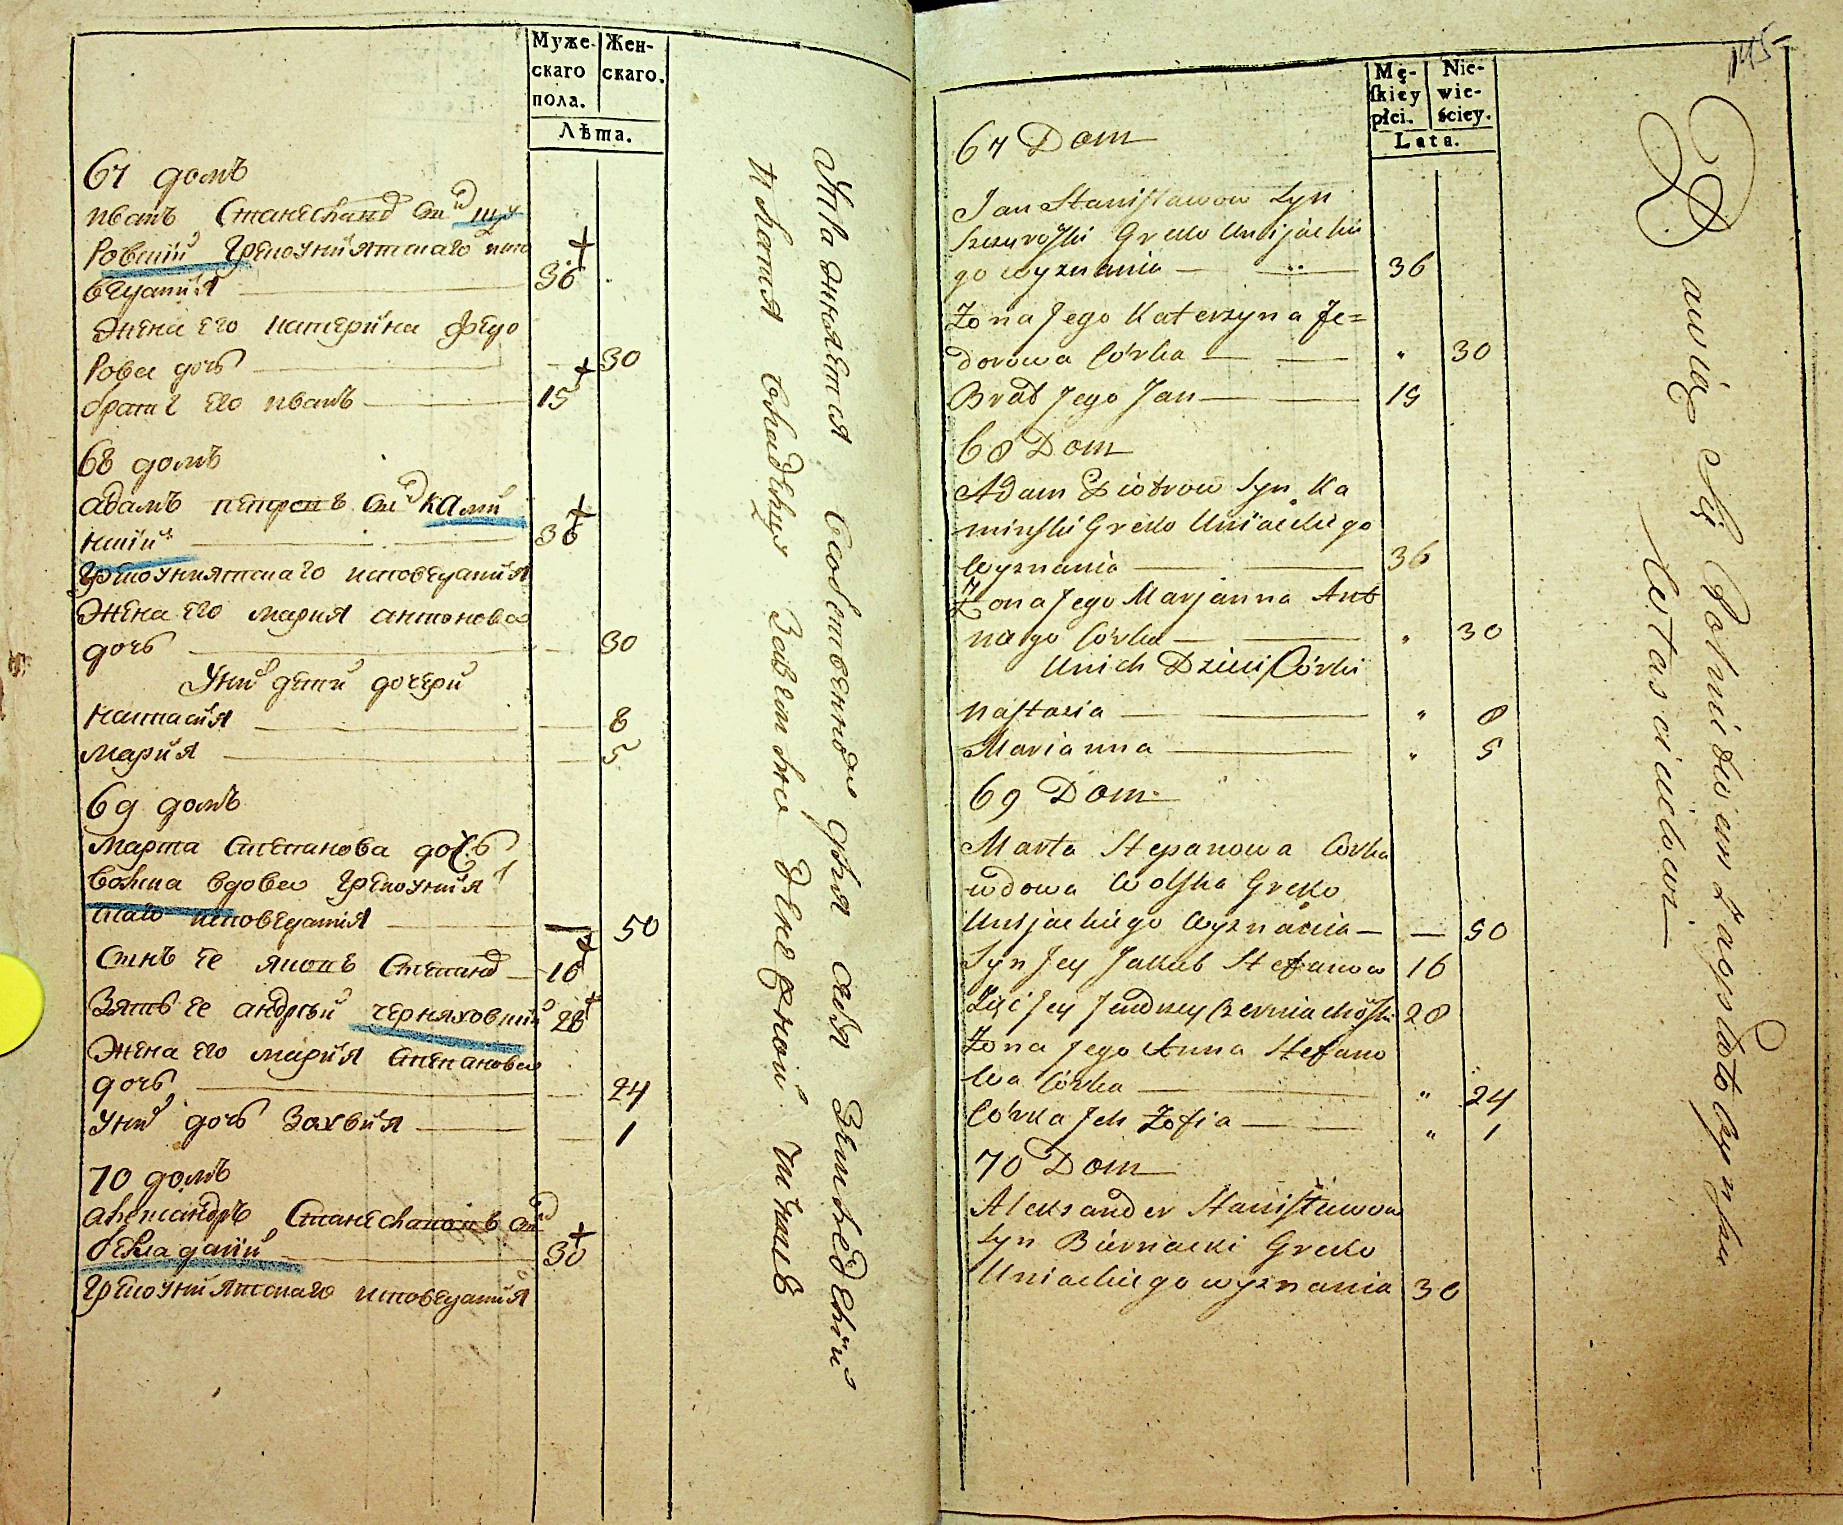 Муже-
скаго
пола.
Жен-
скаго.
Лѣта.
67 домъ
иванъ Станеславовъ синъ щу
ровский грекоуниятскаго испо
ведания
36
Жена его катерина федо
рова дочь
30
братъ его иванъ
15
68 домъ
адамъ петровъ синъ ками
нский
36
грекоуниятскаго исповедания
Жена его мария антонова
дочь
30
У них дети дочери
настасия
8
мария
5
69 домъ
марта степанова дочь
волска вдова грекоуния
скаго исповедания
50
Синъ ее яковъ Степановъ
16
Зять ее андрѣй черняховский
28
Жена его мария степанова
дочь
24
У них дочь Захвия
1
70 домъ
александръ Станеславовъ синъ
30
грекоуниятскаго исповедания
Упражняется собственною для себя земледелием
и платя владельцу
145
Mę-
skiey
płci.
Nie-
wie-
ściey.
Lata.
67 Dom
Jan Stanisławow Syn
Szczurowski Greko Unijackie
go wyznania
36
Zona Jego Katerzyna Fe=
dorowa Córka
30
Brat Jego Jan
15
68 Dom
Adam Piotrow Syn Ka
minski Greko Uniackiego
wyznania
36
Zona Jego Marjanna Anto
niego Córka
30
Unich Dzieci Córki
Nastazia
8
Marianna
5
69 Dom
Marta Stepanowa Córka
wdowa Wolska Greko
Unijackiego Wyznania
50
Syn Jey Jakub Stefanow 16
Zięć Jey Jendrzey Czerniachowski 28
Zona Jego Anna Stefano
wa Córka
24
Córka Jch Zofia
1
70 Dom
Alexander Stanisławow
Syn Biernacki Greko
Uniackiego wyznania 30
Bawią Się Rolnictwem